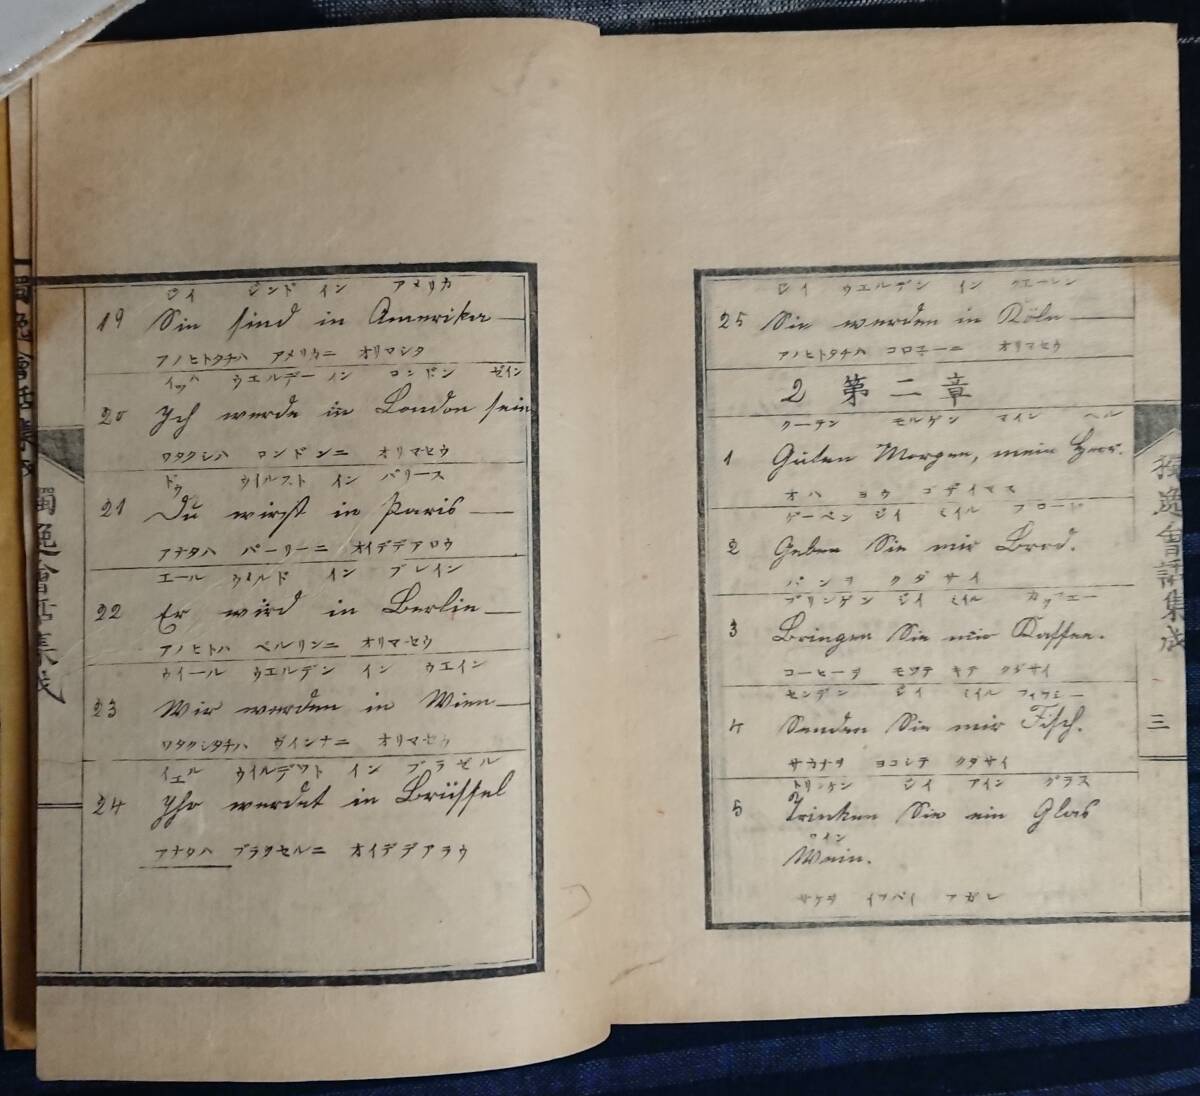 ジイ ジンド イン アメリカ
19 Sie sind in Amerika —
アノヒトタチハ アメリカニ オリマシタ
イッハ ウエルデー イン ロンドン ゼイン
20 Ich werde in London sein
ワタクシハ ロンドンニ オリマセウ
ドゥ ウイルスト イン パリース
21 Du wirst in Paris —
アナタハ パーリーニ オイデデアロウ
エール ウィルド イン ブレイン
22 Er wird in Berlin —
アノヒトハ ベルリンニ オリマセウ
ウイール ウエルデン イン ウエイン
23 Wir werden in Wien —
ワタクシタチハ ヴインナニ オリマセウ
イエル ウイルデット イン ブラゼル
24 Ihr werdet in Brüssel
アナタハ ブラクセルニ オイデデアラウ
ジイ ウエルデン イン クエーレン
25 Sie werden in Köln —
アノヒトタチハ コロネーニ オリマセウ
2 第二章
クーテン モルゲン マイン ヘル
1 Guten Morgen, mein Herr.
オハ ヨウ ゴザイマス
ゲーベン ジイ ミイル ブロード
2 Geben Sie mir Brod.
パンヲ クダサイ
ブリンゲン ジイ ミイル カッフエー
3 Bringen Sie mir Kaffee.
コーヒーヲ モツテ キテ クダサイ
センデン ジイ ミイル フィッシー
4 Senden Sie mir Fisch.
サカナヲ ヨコシテ クダサイ
トリンケン ジイ アイン グラス
5 Trinken Sie ein Glas
ワイン
Wein.
サケヲ イッパイ アガレ
獨逸會話集成
三
獨逸會話集成